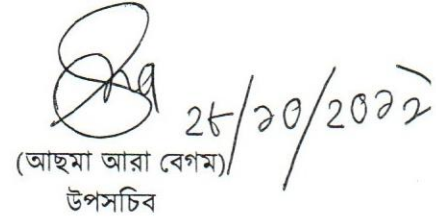 ২৮/১০/২০২২
(আছমা আরা বেগম)
উপসচিব